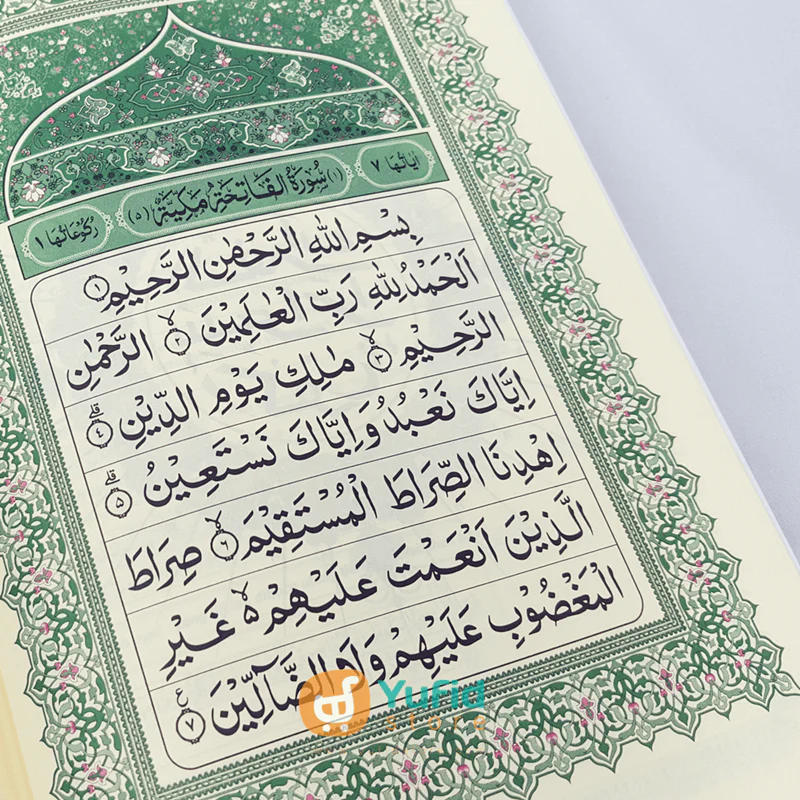 اٰيَاتُهَا ٧
(١) سُوْرَةُ الْفَاتِحَةِ مَكِّيَّةٌ (٥)
رُكُوْعَاتُهَا ١
بِسْمِ اللّٰهِ الرَّحْمٰنِ الرَّحِيْمِ ١
اَلْحَمْدُ لِلّٰهِ رَبِّ الْعٰلَمِيْنَ ۙ ٢ الرَّحْمٰنِ
الرَّحِيْمِ ۙ ٣ مٰلِكِ يَوْمِ الدِّيْنِ ۗ ٤
اِيَّاكَ نَعْبُدُ وَاِيَّاكَ نَسْتَعِيْنُ ۗ ٥
اِهْدِنَا الصِّرَاطَ الْمُسْتَقِيْمَ ۙ ٦ صِرَاطَ
الَّذِيْنَ اَنْعَمْتَ عَلَيْهِمْ ۙ۵ غَيْرِ
الْمَغْضُوْبِ عَلَيْهِمْ وَلَا الضَّاۤلِّيْنَ ࣖ ٧
Yufid
store